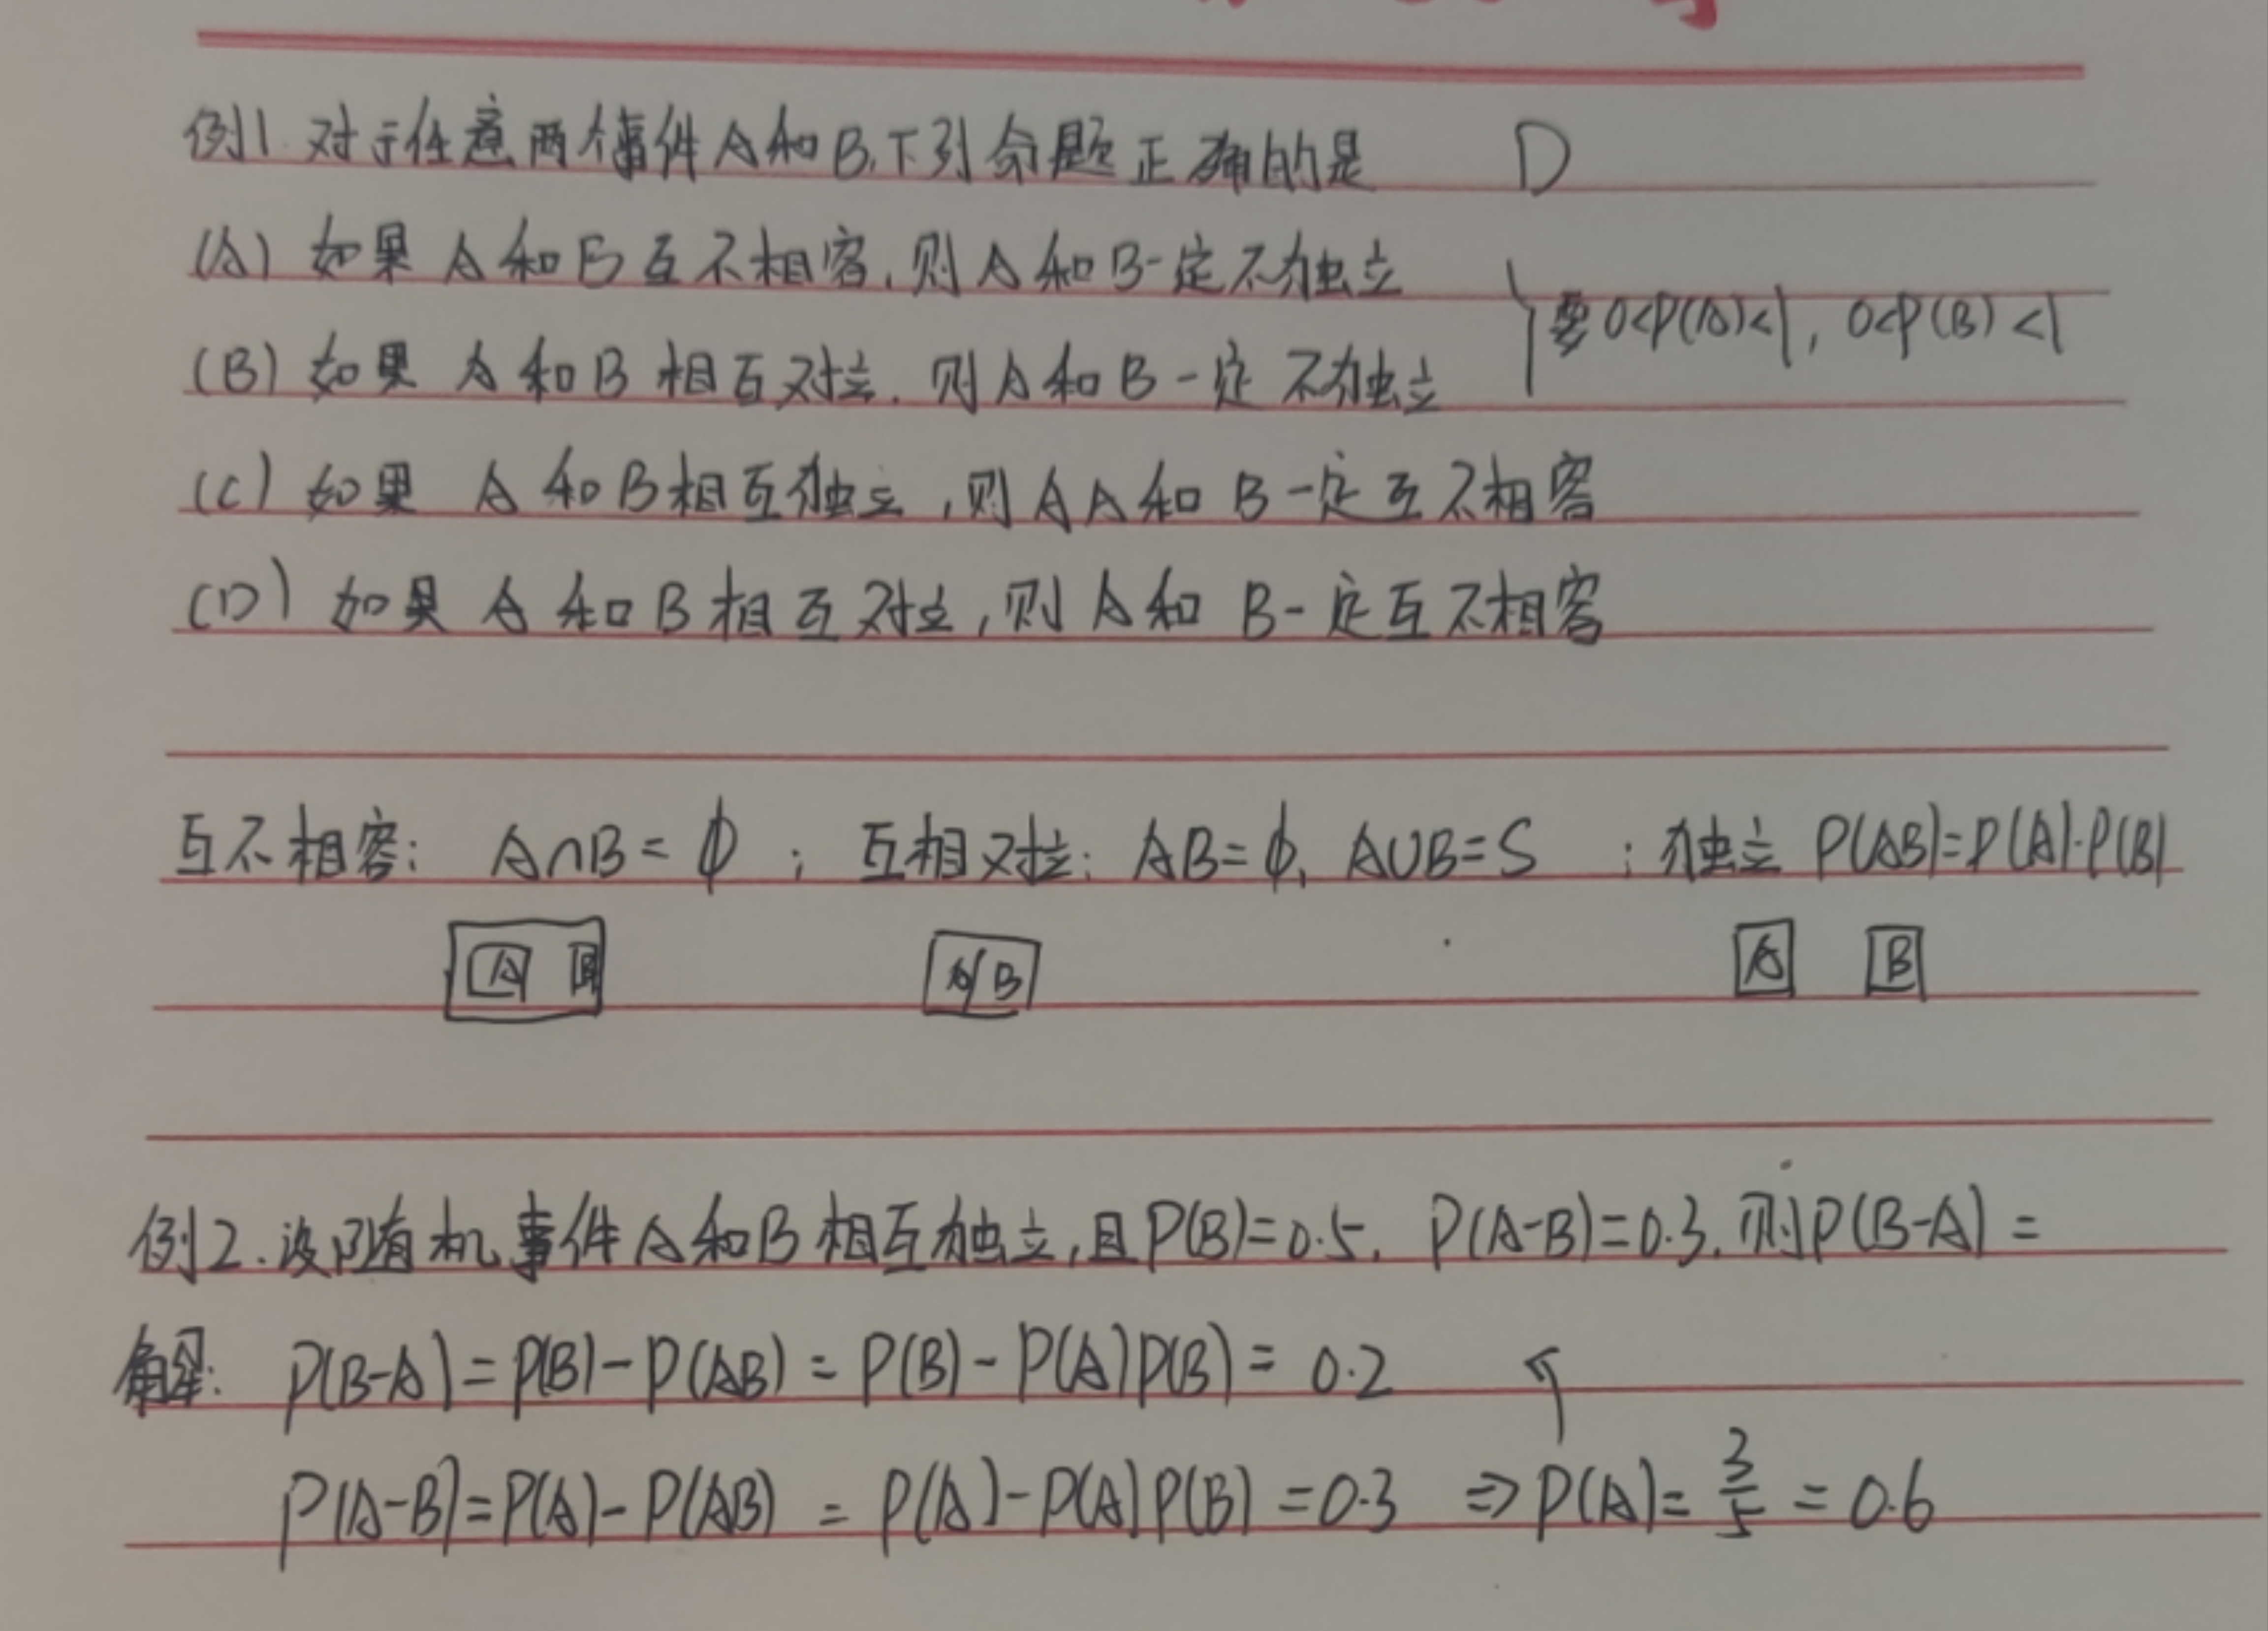 例1.对于任意两个事件A和B,下列命题正确的是 D
(A) 如果A和B互不相容,则A和B一定不独立
(B) 如果A和B相互对立,则A和B一定不独立
要0<P(A)<1, 0<P(B)<1
(C) 如果A和B相互独立,则AA和B一定互不相容
(D) 如果A和B相互对立,则A和B一定互不相容
互不相容: A∩B=ϕ ; 互相对立: AB=ϕ, A∪B=S ; 独立 P(AB)=P(A)·P(B)
A B A/B A B
例2.设随机事件A和B相互独立,且P(B)=0.5, P(A-B)=0.3,则P(B-A)=
解: P(B-A)=P(B)-P(AB)=P(B)-P(A)P(B)=0.2
P(A-B)=P(A)-P(AB)=P(A)-P(A)P(B)=0.3 ⇒P(A)=3/5=0.6